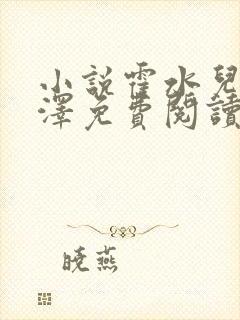 小說霍水兒
澤免費閱讀
曉燕